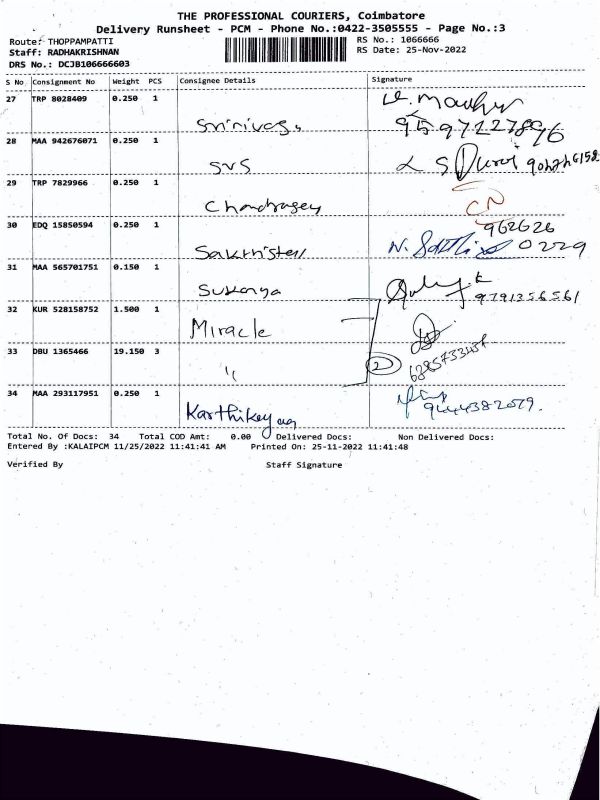 THE PROFESSIONAL COURIERS, Coimbatore
Delivery Runsheet - PCM - Phone No.:0422-3505555 - Page No.:3
Route: THOPPAMPATTI
RS No.: 1066666
Staff: RADHAKRISHNAN
RS Date: 25-Nov-2022
DRS No.: DCJB106666603
S No Consignment No Weight PCS Consignee Details Signature
27 TRP 8028409 0.250 1 Srinivas
9597127896
28 MAA 942676071 0.250 1 SVS
29 TRP 7829966 0.250 1 CN
30 EDQ 15850594 0.250 1 962626
0229
31 MAA 565701751 0.150 1 Sukanya
9791356561
32 KUR 528158752 1.500 1 Miracle
33 DBU 1365466 19.150 3 " 2
6385733437
34 MAA 293117951 0.250 1 Karthikeyan
9444382079.
Total No. Of Docs: 34 Total COD Amt: 0.00 Delivered Docs: Non Delivered Docs:
Entered By :KALAIPCM 11/25/2022 11:41:41 AM Printed On: 25-11-2022 11:41:48
Verified By Staff Signature